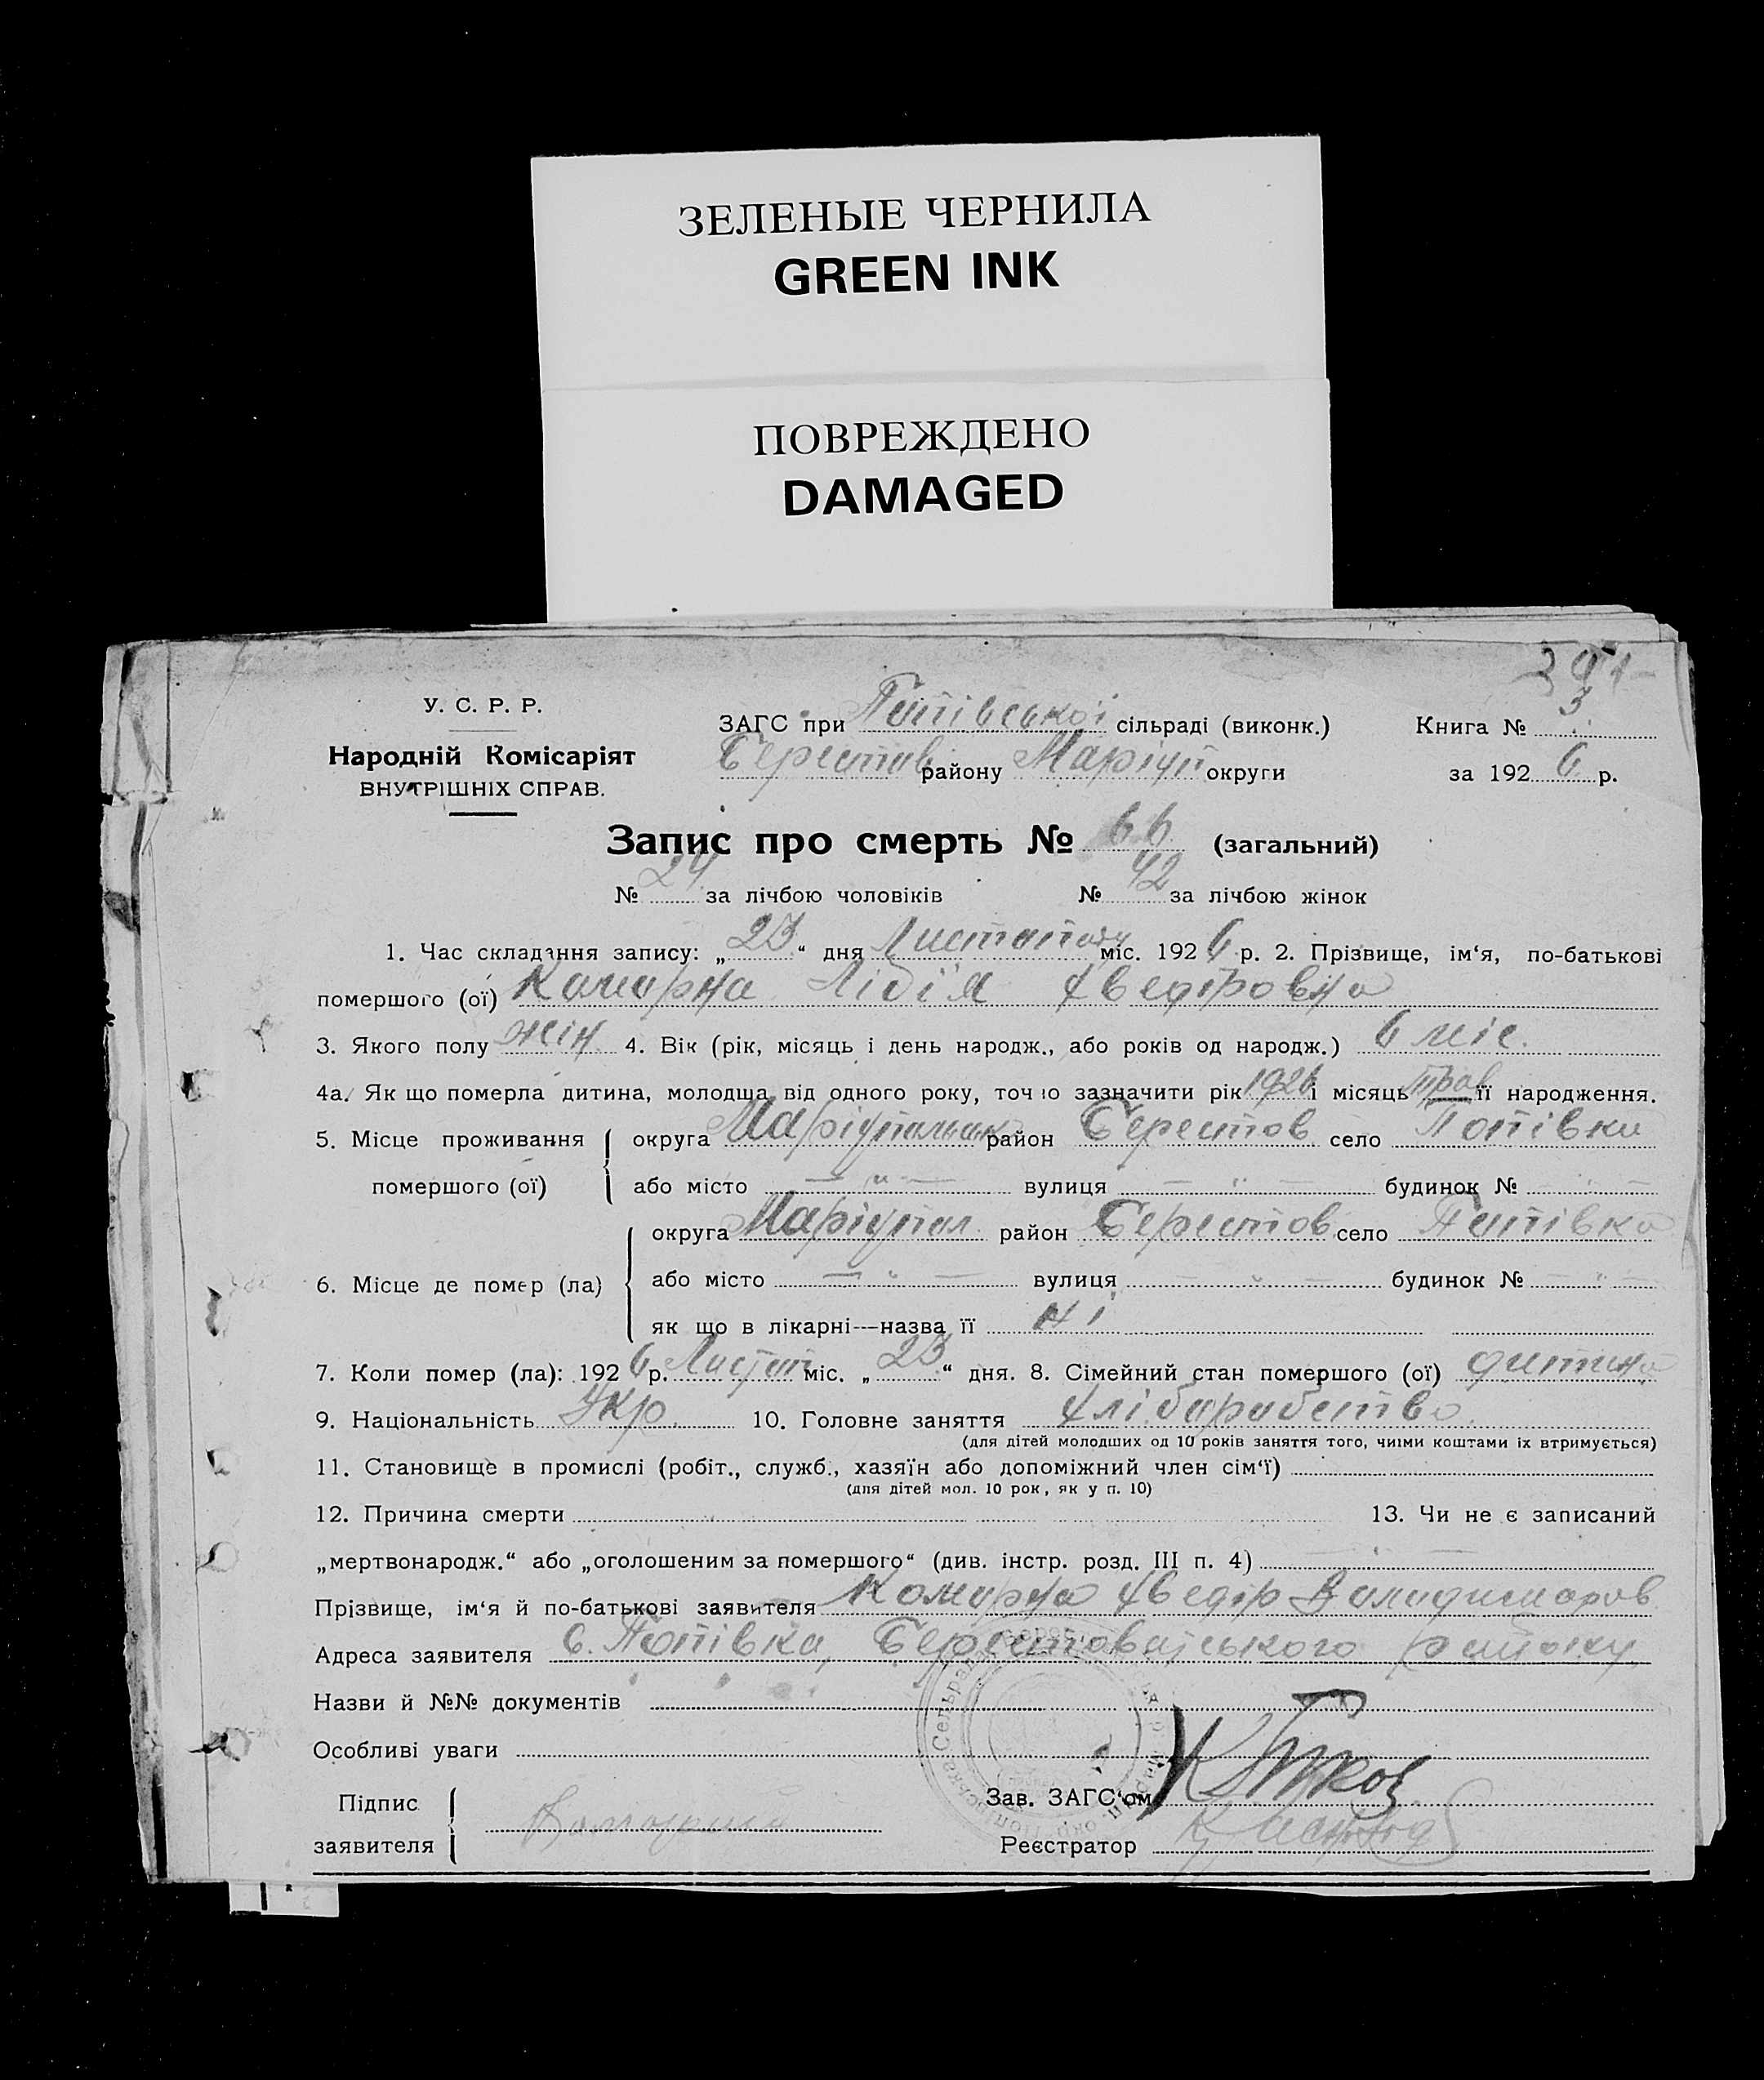 ЗЕЛЕНЫЕ ЧЕРНИЛА
GREEN INK
ПОВРЕЖДЕНО
DAMAGED
У. С. Р. Р.
Народній Комісаріят
ВНУТРІШНІХ СПРАВ.
ЗАГС при Попівської сільраді (виконк.) Книга № 3
Берестов району Маріуп округи за 1926 р.
Запис про смерть № 66 (загальний)
№ 24 за лічбою чоловіків № 42 за лічбою жінок
1. Час складання запису: „23“ дня Листопаду міс. 1926 р. 2. Прізвище, ім‘я, по-батькові
помершого (ої) Комирна Лідія Хведіровна
3. Якого полу жін. 4. Вік (рік, місяць і день народж., або років од народж.) 6 міс.
4а. Як що померла дитина, молодша від одного року, точно зазначити рік 1926 і місяць Трав її народження.
5. Місце проживання помершого (ої) округа Маріупольськ район Берестов село Попівки
або місто — „ — вулиця — „ — будинок № — „ —
6. Місце де помер (ла) округа Маріупол. район Берестов. село Попівка
або місто — „ — вулиця — „ — будинок № — „ —
як що в лікарні—назва її ні
7. Коли помер (ла): 1926 р. Листоп міс. „23“ дня. 8. Сімейний стан помершого (ої) дитина
9. Національність Укр. 10. Головне заняття Хліборобство.
(для дітей молодших од 10 років заняття того, чиїми коштами їх втримується)
11. Становище в промислі (робіт., служб., хазяїн або допоміжний член сім‘ї)
(для дітей мол. 10 рок, як у п. 10)
12. Причина смерти 13. Чи не є записаний
„мертвонародж.“ або „оголошеним за помершого“ (див. інстр. розд. III п. 4)
Прізвище, ім‘я й по-батькові заявителя Комирна Хведір Валадимиров
Адреса заявителя с. Попівка, Берестоваського району
Назви й №№ документів
Особливі уваги
Підпис заявителя
Зав. ЗАГС‘ом
Реєстратор